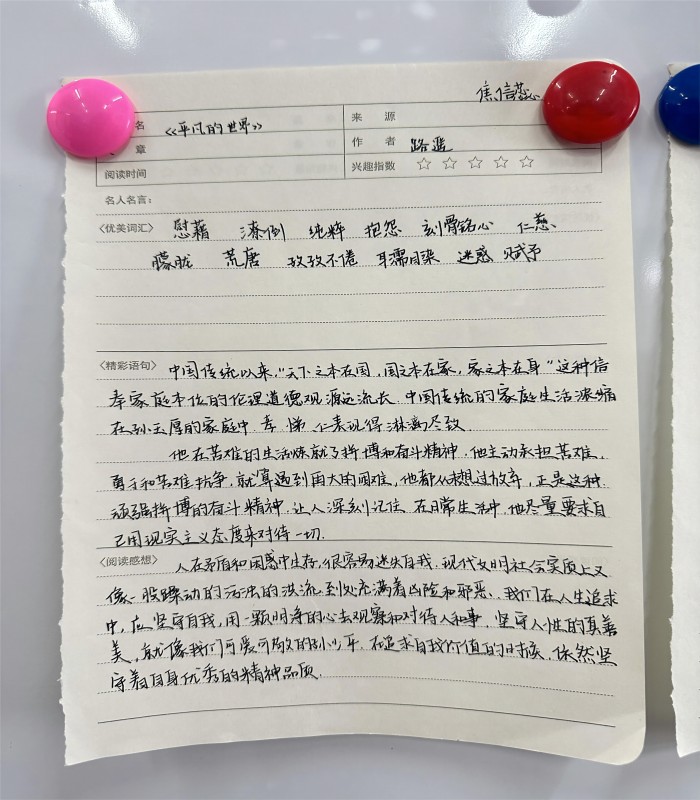 焦信蕊
名 《平凡的世界》 来 源
章 作 者 路遥
阅读时间 兴趣指数 ☆ ☆ ☆ ☆ ☆
名人名言：
〈优美词汇〉 慰藉 潦倒 纯粹 抱怨 刻骨铭心 仁慈
朦胧 荒唐 孜孜不倦 耳濡目染 迷惑 赋予
〈精彩语句〉 中国传统以来，“天下之本在国，国之本在家，家之本在身”这种信
奉家庭本位的伦理道德观源远流长．中国传统的家庭生活浓缩
在孙玉厚的家庭中．孝．悌．仁表现得淋漓尽致．
他在苦难的生活炼就了拼博和奋斗精神．他主动承担苦难，
勇于和苦难抗争，就算遇到再大的困难，他都从未想过放弃，正是这种
顽强拼博的奋斗精神．让人深刻记住．在日常生活中，他尽量要求自
己用现实主义态度来对待一切．
〈阅读感想〉 人在矛盾和困惑中生存，很容易迷失自我．现代文明社会实质上又
像一股躁动的污浊的洪流，到处充满着凶险和邪恶．我们在人生追求
中，应坚守自我，用一颗明净的心去观察和对待人和事．坚守人性的真善
美，就像我们可爱可敬的孙少平．在追求自我价值的时候，依然坚
守着自身优秀的精神品质．